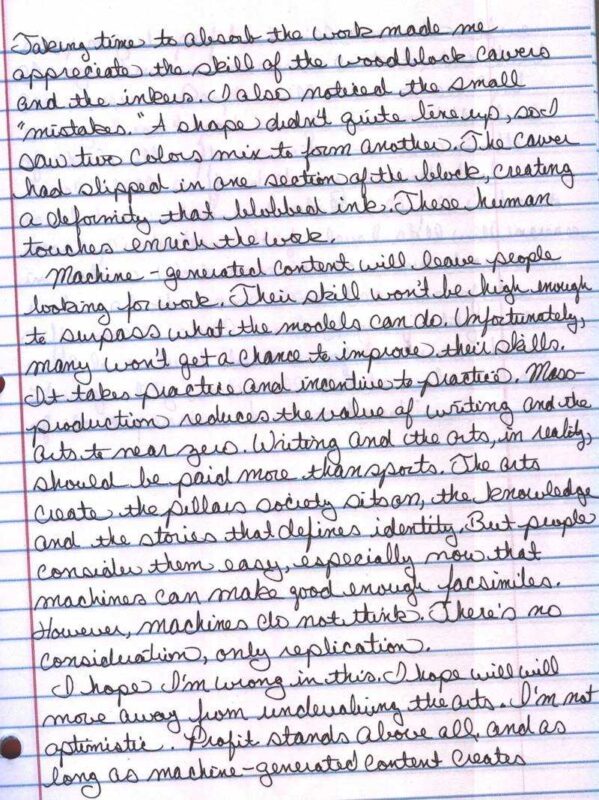 Taking time to absorb the work made me
appreciate the skill of the woodblock carvers
and the inkers. I also noticed the small
"mistakes." A shape didn't quite line up, so I
saw two colors mix to form another. The carver
had slipped in one section of the block, creating
a deformity that blobbed ink. These human
touches enrich the work.
Machine-generated content will leave people
looking for work. Their skill won't be high enough
to surpass what the models can do. Unfortunately,
many won't get a chance to improve their skills.
It takes practice and incentive to practice. Mass-
production reduces the value of writing and the
arts to near zero. Writing and the arts, in reality,
should be paid more than sports. The arts
create the pillars society sits on, the knowledge
and the stories that defines identity. But people
consider them easy, especially now that
machines can make good enough facsimiles.
However, machines do not think. There's no
consideration, only replication.
I hope I'm wrong in this. I hope will will
move away from undervaluing the arts. I'm not
optimistic. Profit stands above all, and as
long as machine-generated content creates